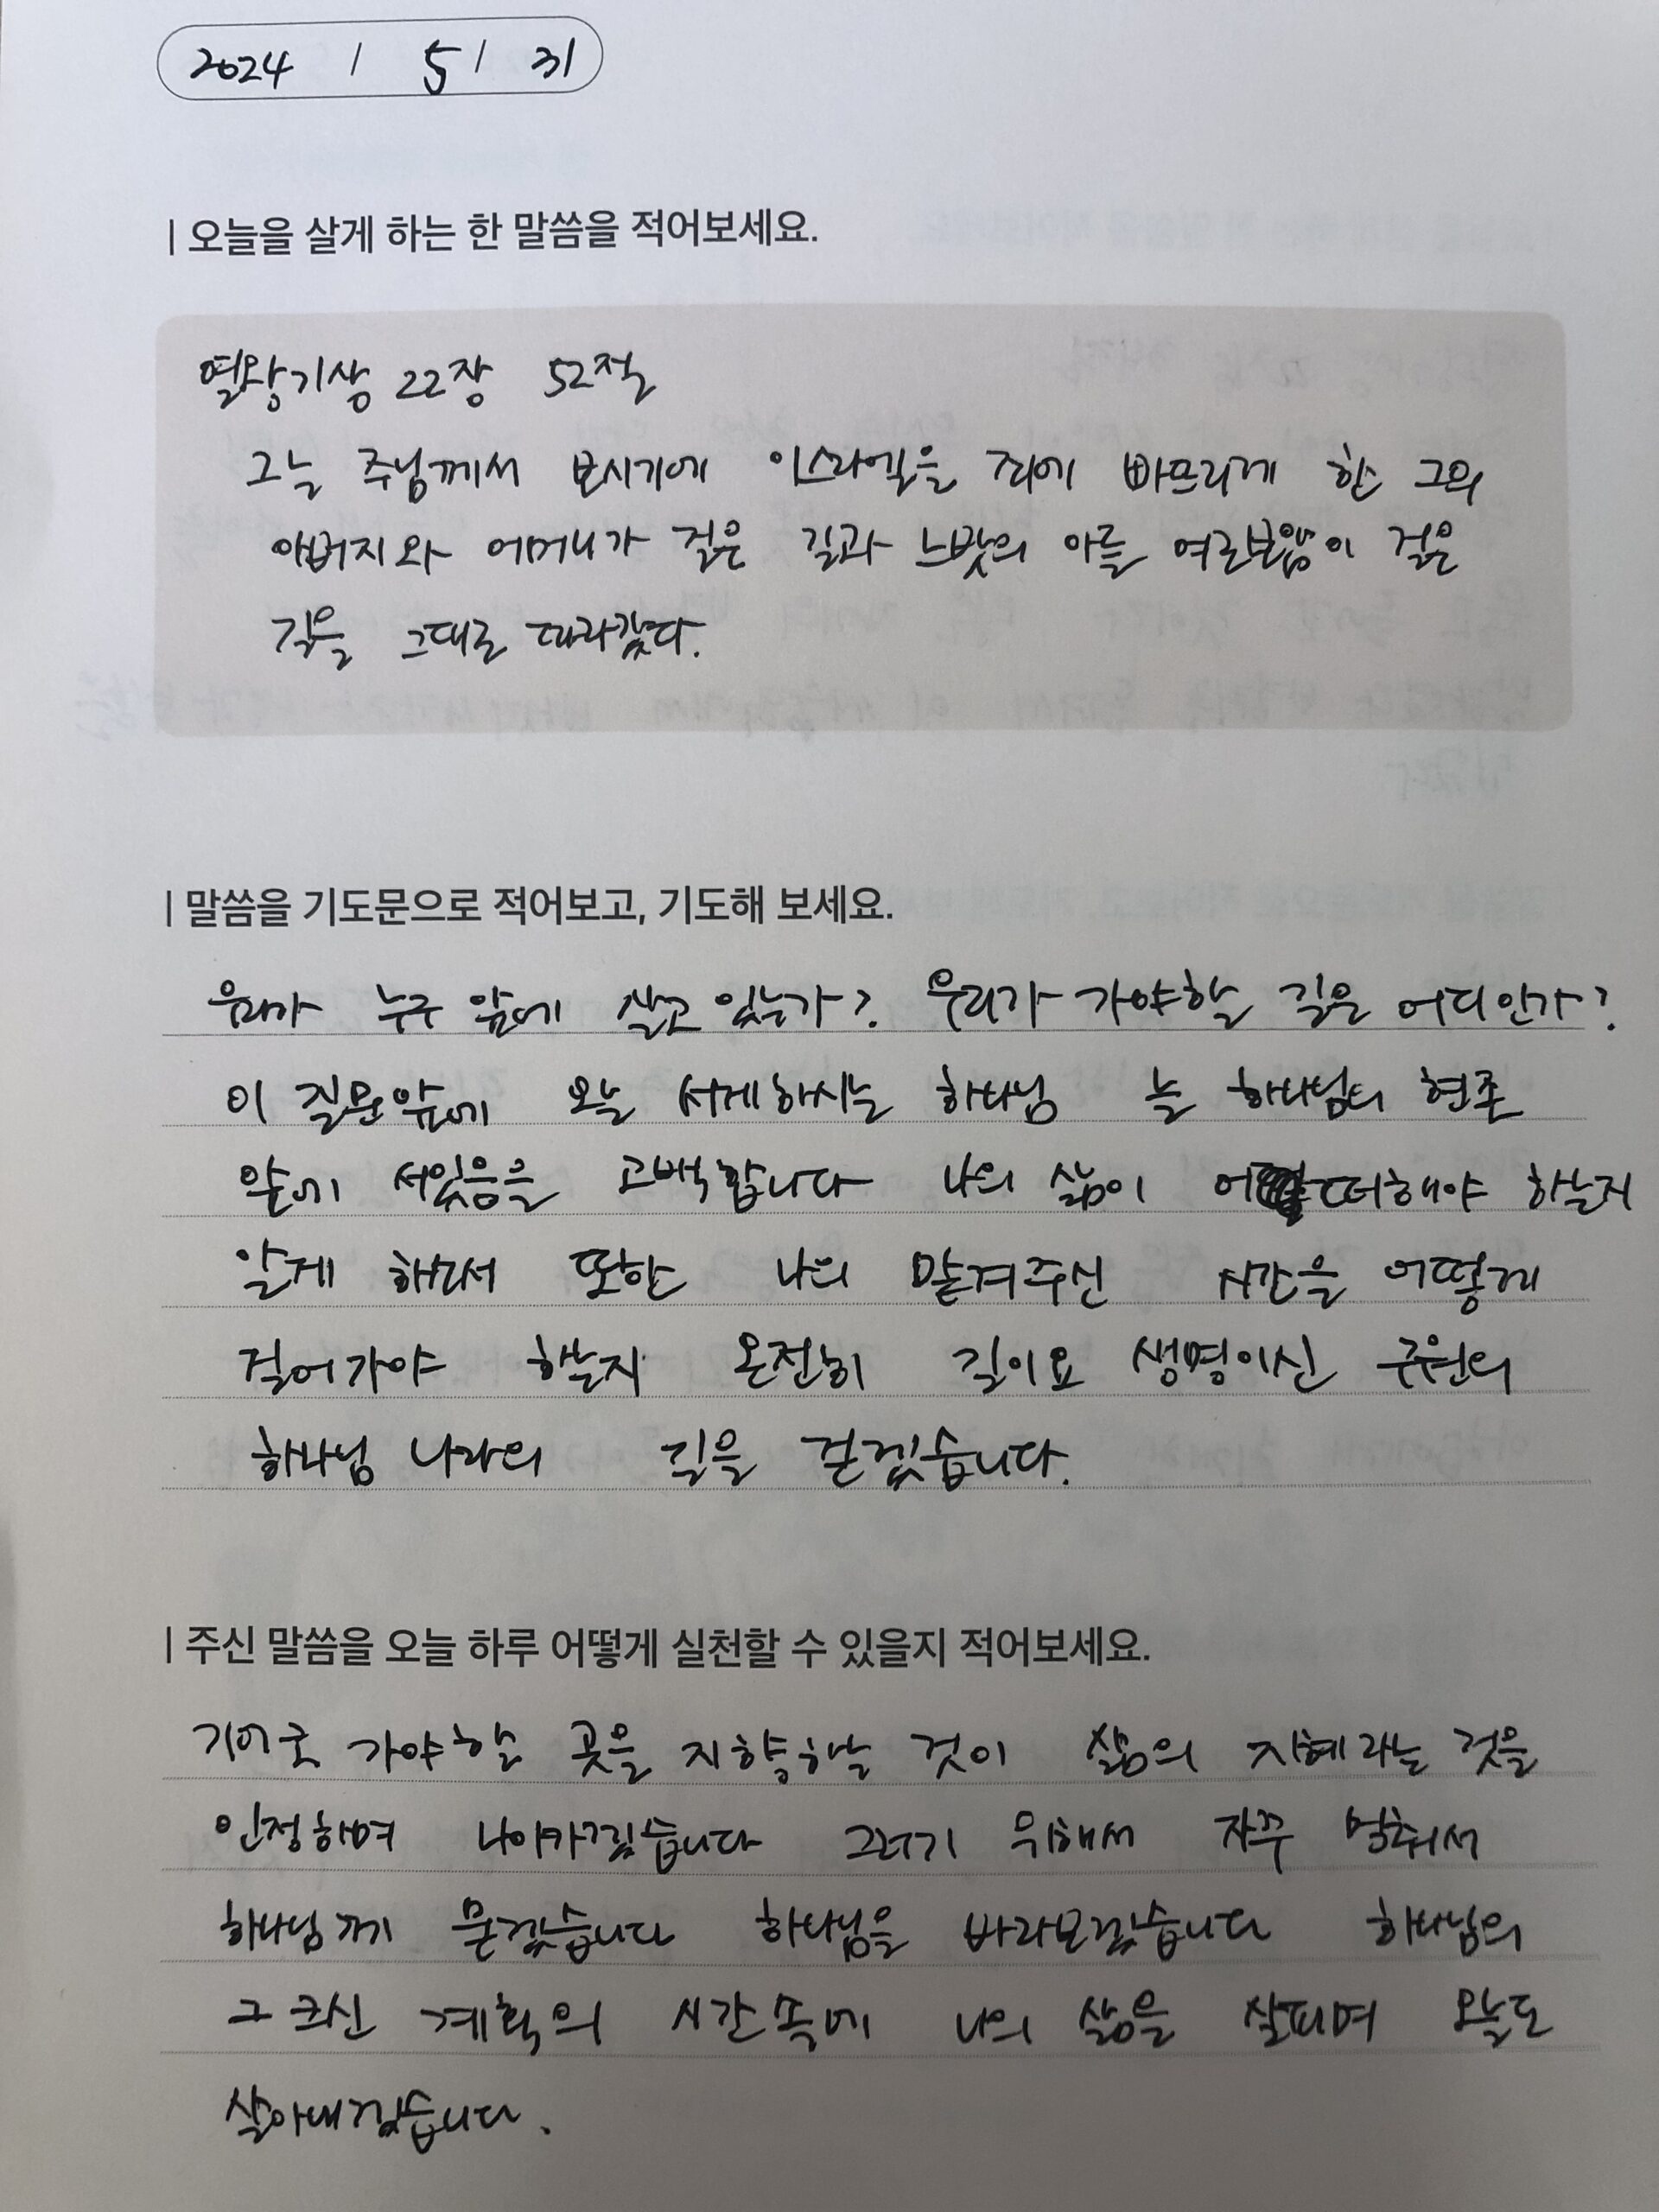 2024 / 5 / 31
| 오늘을 살게 하는 한 말씀을 적어보세요.
열왕기상 22장 52절
그는 주님께서 보시기에 이스라엘을 죄에 빠뜨리게 한 그의
아버지와 어머니가 걸은 길과 느밧의 아들 여로보암이 걸은
길을 그대로 따라갔다.
| 말씀을 기도문으로 적어보고, 기도해 보세요.
우리가 누구 앞에 살고 있는가? 우리가 가야할 길은 어디인가?
이 질문앞에 오늘 서게하시는 하나님 늘 하나님의 현존
앞에 서있음을 고백합니다 나의 삶이 어떠해야 하는지
알게 해주셔서 또한 나의 맡겨주신 시간을 어떻게
걸어가야 하는지 온전히 길이요 생명이신 구원의
하나님 나라의 길을 걷겠습니다.
| 주신 말씀을 오늘 하루 어떻게 실천할 수 있을지 적어보세요.
기어코 가야할 곳을 지향하는 것이 삶의 지혜라는 것을
인정하며 나아가겠습니다 그러기 위해서 자꾸 멈춰서
하나님께 묻겠습니다 하나님을 바라보겠습니다 하나님의
그 크신 계획의 시간속에 나의 삶을 살피며 오늘도
살아내겠습니다.